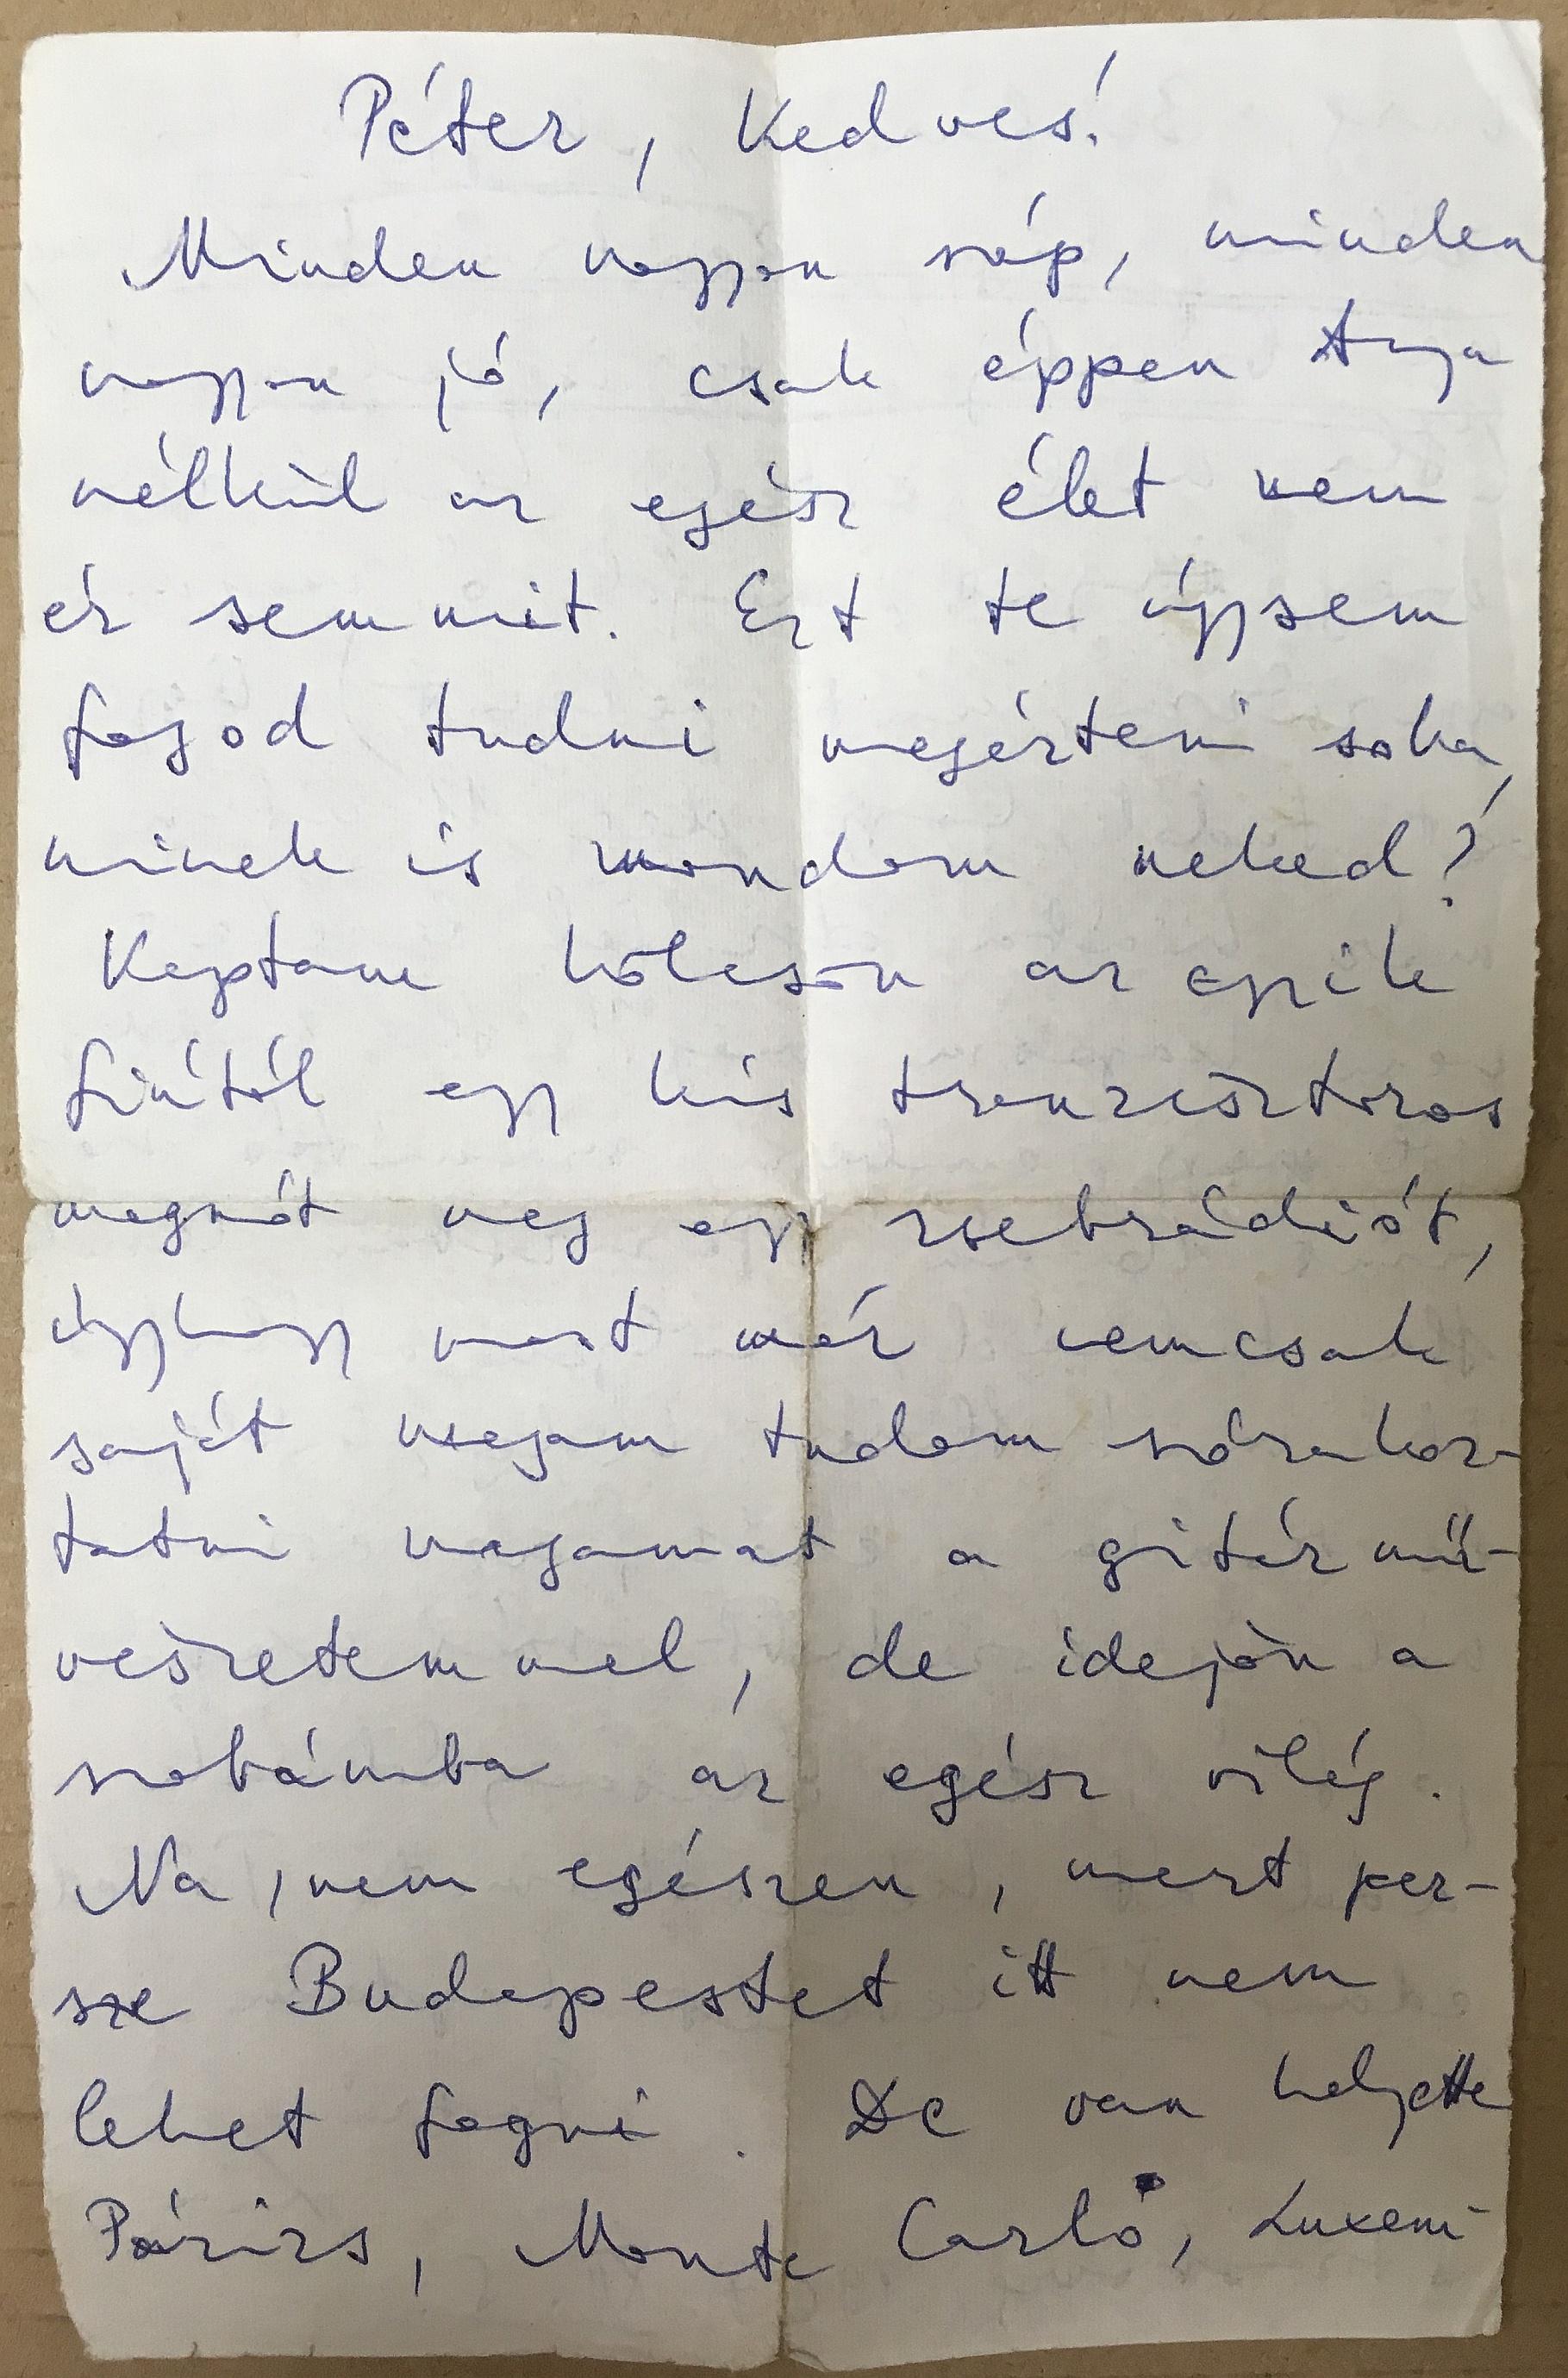 Péter, Kedves!
Minden nagyon szép, minden
nagyon jó, csak éppen Anya
nélkül az egész élet nem
ér semmit. Ezt te úgysem
fogod tudni megérteni soha,
minek is mondom neked?
Kaptam kölcsön az egyik
fiútól egy kis tranzisztoros
magnót meg egy zsebrádiót,
úgyhogy most már nemcsak
saját magam tudom szórakoz-
tatni magamat a gitármű-
vészetemmel, de idejön a
szobámba az egész világ.
Na, nem egészen, mert per-
sze Budapestet itt nem
lehet fogni. De van helyette
Párizs, Monte Carlo, Luxem-